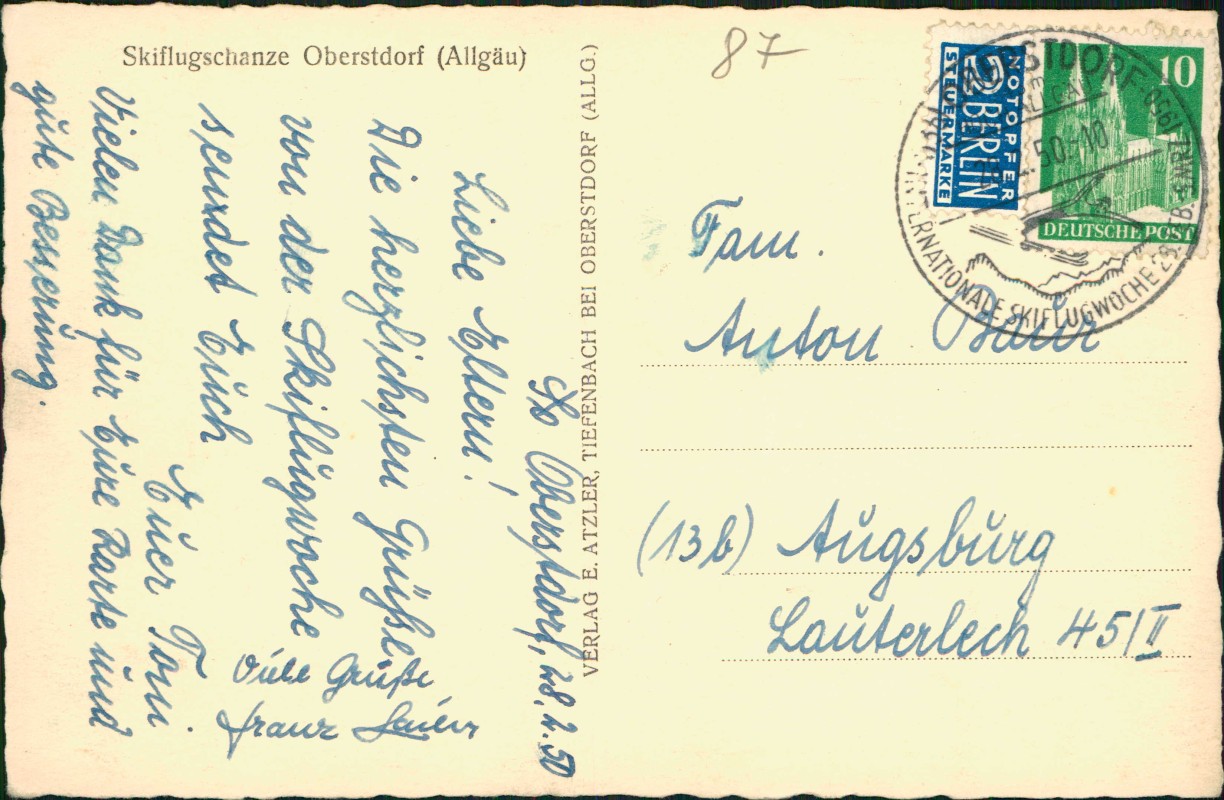 Skiflugschanze Oberstdorf (Allgäu)
87
So Oberstdorf, 28.2.50
Liebe Eltern!
Die herzlichsten Grüße
von der Skiflugwoche
sendet Euch
Euer Toni.
Vielen Dank für Eure Karte und
gute Besserung.
Viele Grüße
Franz
VERLAG E. ATZLER, TIEFENBACH BEI OBERSTDORF (ALLG.)
NOTOPFER
2 BERLIN
STEUERMARKE
10
DEUTSCHE POST
OBERSTDORF
50.-10
INTERNATIONALE SKIFLUGWOCHE 28.FEB.-5.MRZ.1950
Fam.
Anton Baur
(13b) Augsburg
Lauterlech 45/II